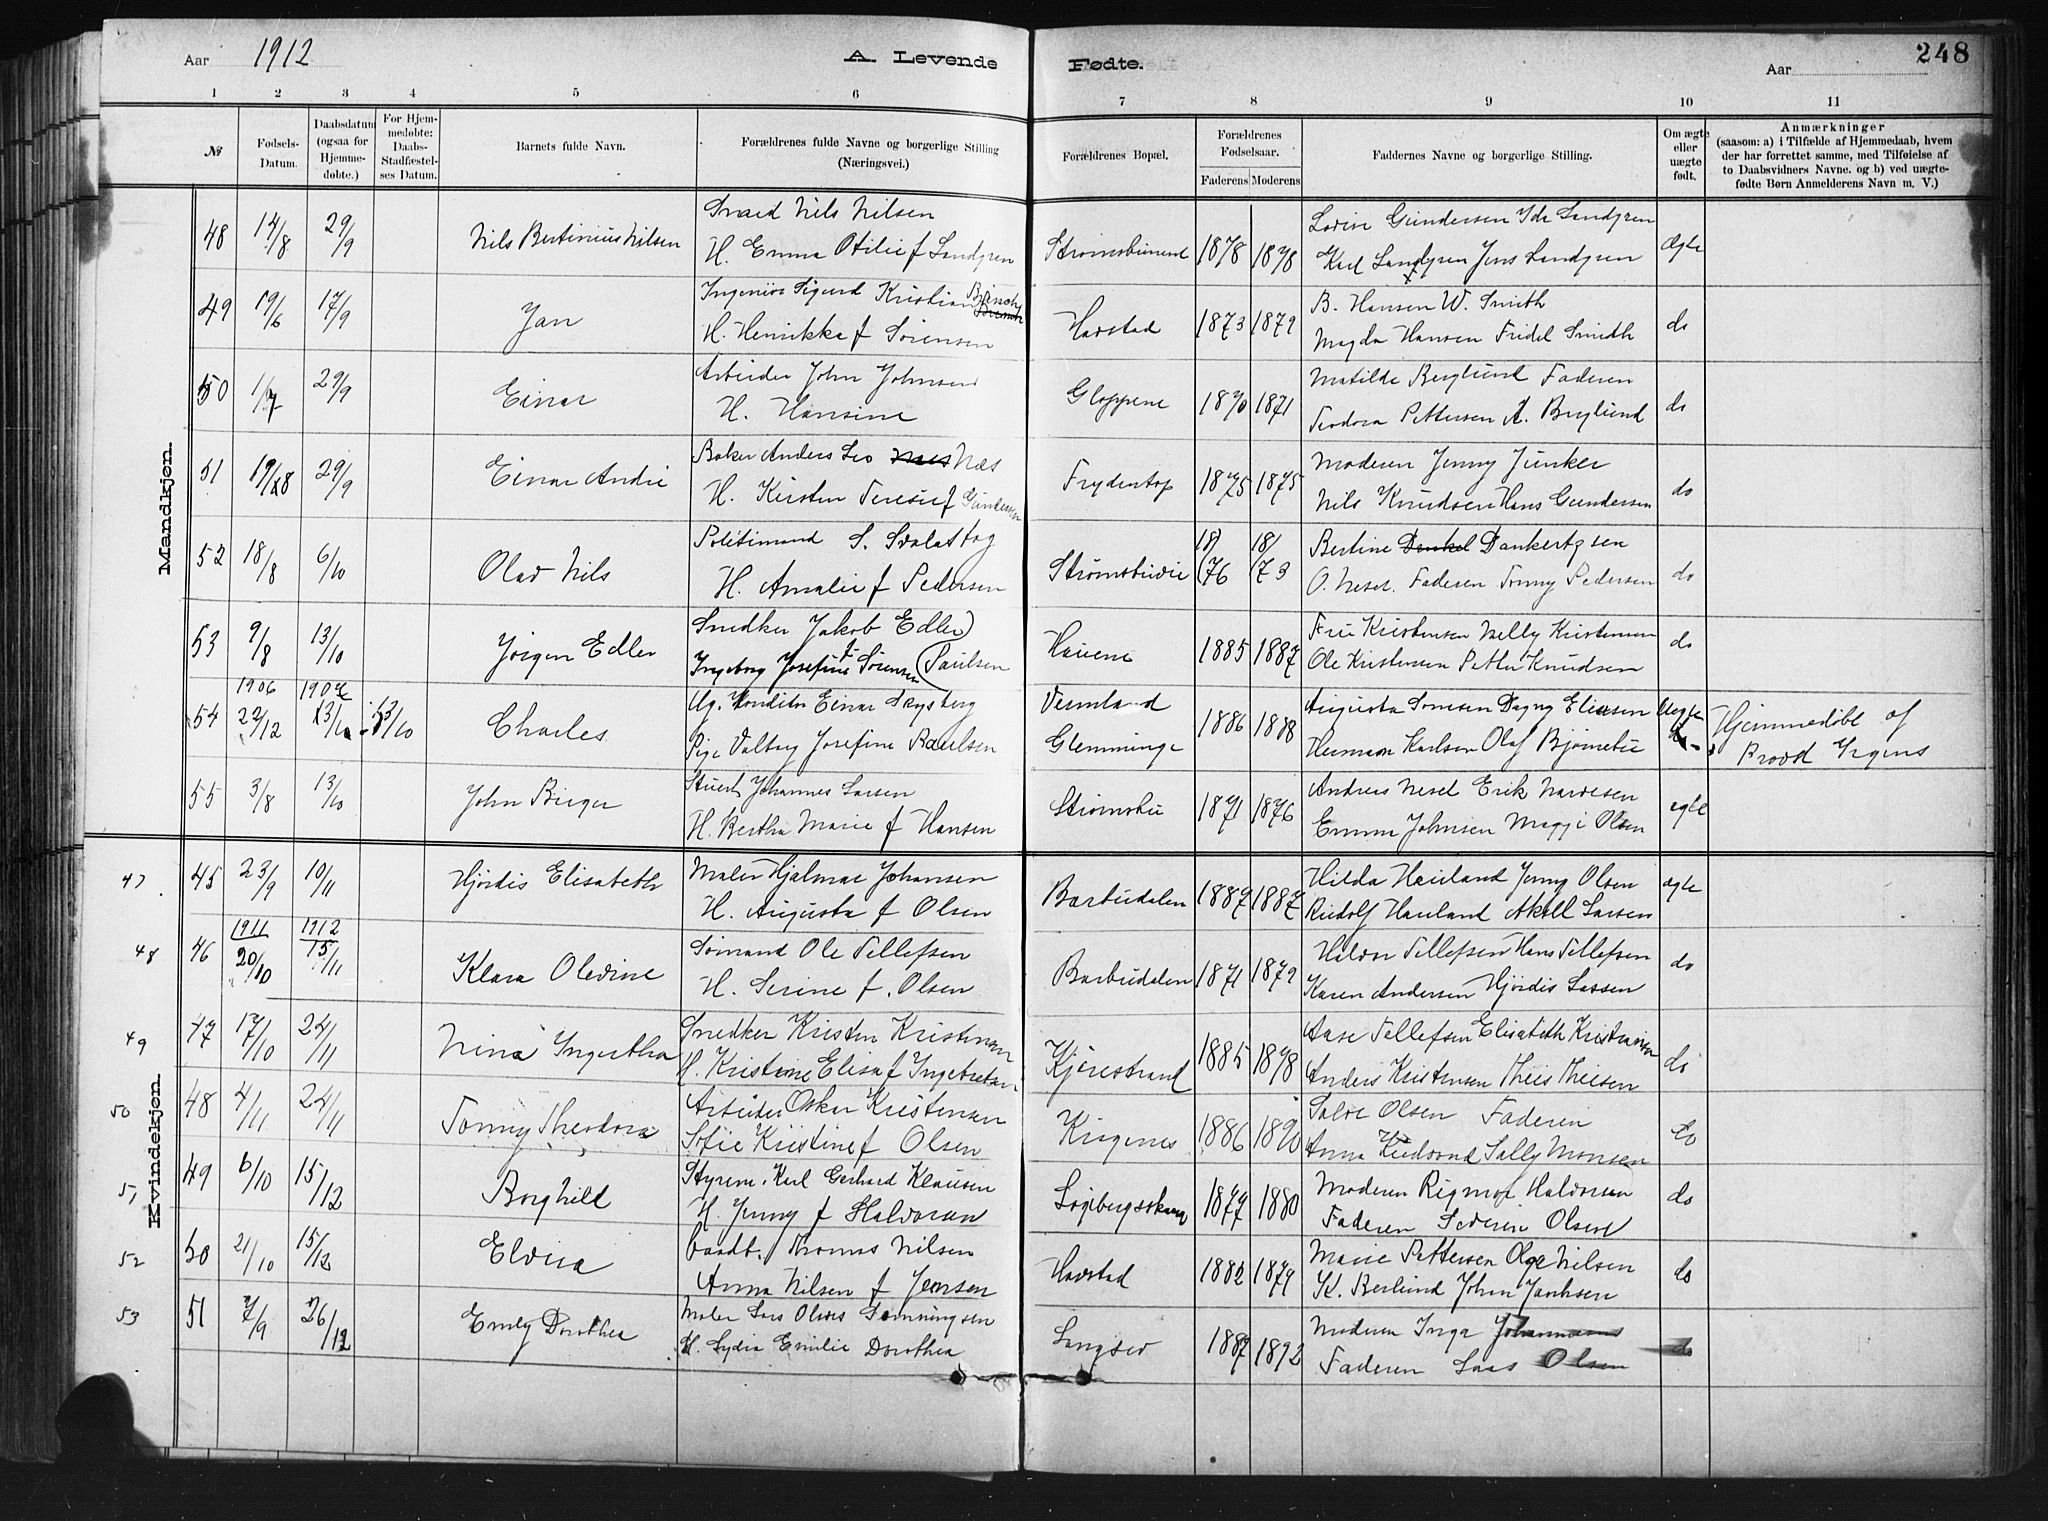 Aar 1912 A. Levende Fødte. Aar 248
1 2 3 4 5 6 7 8 9 10 11
№ Fødsels-Datum. Daabsdatum (ogsaa for Hjemmedøbte.) For Hjemmedøbte: Daabs-Stadfæstelses Datum. Barnets fulde Navn. Forældrenes fulde Navne og borgerlige Stilling (Næringsvei.) Forældrenes Bopæl. Forældrenes Fødselsaar. Faderens Moderens Faddernes Navne og borgerlige Stilling. Om ægte eller uægte født. Anmærkninger (saasom: a) i Tilfælde af Hjemmedaab, hvem der har forrettet samme, med Tilføielse af to Daabsvidners Navne. og b) ved uægtefødte Børn Anmelderens Navn m. V.)
Mandkjøn.
48 14/8 29/9 Nils Bertinius Nilsen Smed Nils Nilsen Strømsbuneset 1878 1878 Lovise Gundersen Ida Landgren Ægte
H. Emma Otilie f Landgren Karl Landgren Jens Landgren
49 19/6 17/9 Jan Ingeniør Sigurd Kristian Brinch Havstad 1873 1879 B. Hansen W. Smith do
H. Henrikka f Sørensen Magda Hansen Fridel Smidth
50 1/7 29/9 Einar Arbeider John Johnsen Gloppene 1870 1871 Matilde Berglund Faderen do
H. Hansine Teodora Pettersen A. Berglund
51 19/8 29/9 Einar Andre Baker Anders Leo Næs Frydentop 1875 1875 Moderen Jenny Junker do
H. Kirsten Teresie f Gundersen Nils Knudsen Hans Gundersen
52 18/8 6/10 Olav Nils Politimand S. Svalastog Strømsbuvie 18/76 18/73 Bertine Dankertzsen do
H. Amalie f Pedersen O. Neset. Faderen Tonny Pedersen
53 9/8 13/10 Jørgen Edler Snedker Jakob Edler Hauene 1885 1887 Fru Kristensen Nelly Kristensen do
Ingeborg Josefine f Sørensen (Paulsen) Ole Kristensen Petter Knudsen
54 1906 22/12 1907 13/10 13/10 Charles Ug. Konditor Einar Skysberg Vermland 1886 1888 Augusta Tomesen Dagny Eliasen Uægte Hjemmedøbt af
Pige Valborg Josefine Paulsen Glemminge Herman Karlsen Olaf Bjørnebu Provd Irgens
55 3/8 13/10 John Birger Stuert Johannes Larsen Strømsbu 1871 1876 Andreas Nesel Erik Narvesen ægte
H. Bertha Marie f Hansen Emma Johnsen Maggi Olsen
Kvindekjøn.
47 45 23/9 10/11 Hjørdis Elisabeth Maler Hjalmar Johansen Barbudalen 1887 1887 Hilda Hauland Jenny Olsen ægte
H. Augusta f Olsen Rudolf Hauland Aksell Larsen
48 46 1911 20/10 1912 15/11 Klara Olevine Sømand Ole Tellefsen Barbudalen 1871 1879 Halvor Tellefsen Hans Tellefsen do
H. Serine f. Olsen Karen Andersen Hjørdis Lassen
49 47 17/10 24/11 Nina Ingertha Snedker Kristen Kristensen Kjørestrand 1885 1878 Aase Tellefsen Elisabeth Kristensen do
H. Kristine Elisa f Ingebretsen Anders Kristensen Theis Theisen
50 48 4/11 24/11 Tonny Theodora Arbeider Oskar Kristensen Krigenes 1886 1890 Salve Olsen Faderen do
Sofie Kristine f Olsen Anna Sally Monsen
51 49 6/10 15/12 Borghild Styrem. Karl Gerhard Klausen 1877 1880 Moderen Rigmor Halvorsen do
H. Jenny f Halvorsen Faderen Severin Olsen
52 50 21/10 15/12 Elvira Thomas Nilsen Havstad 1882 1879 Marie Pettersen Olga Nilsen do
Anna Nilsen f Jensen K. Berlund John Janksen
53 51 7/9 26/12 Emely Dorothea Maler Lars Olves Lanmingsen Langsev 1887 1892 Moderen Inga Johannsen do
H. Lydia Emilie Dorothea Faderen Lars Olsen